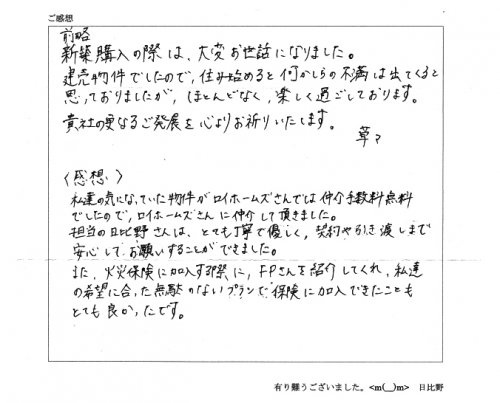 ご感想
前略
新築購入の際は、大変お世話になりました。
建売物件でしたので、住み始めると何かしらの不満は出てくると
思っておりましたが、ほとんどなく、楽しく過ごしております。
貴社の更なるご発展を心よりお祈りいたします。
草々
〈感想〉
私達の気になっていた物件がロイホームズさんでは仲介手数料無料
でしたので、ロイホームズさんに仲介して頂きました。
担当の日比野さんは、とても丁寧で優しく、契約や引き渡しまで
安心してお願いすることができました。
また、火災保険に加入する際に、FPさんを紹介してくれ、私達
の希望に合った無駄のないプランで保険に加入できたことも
とても良かったです。
有り難うございました。<m(__)m> 日比野